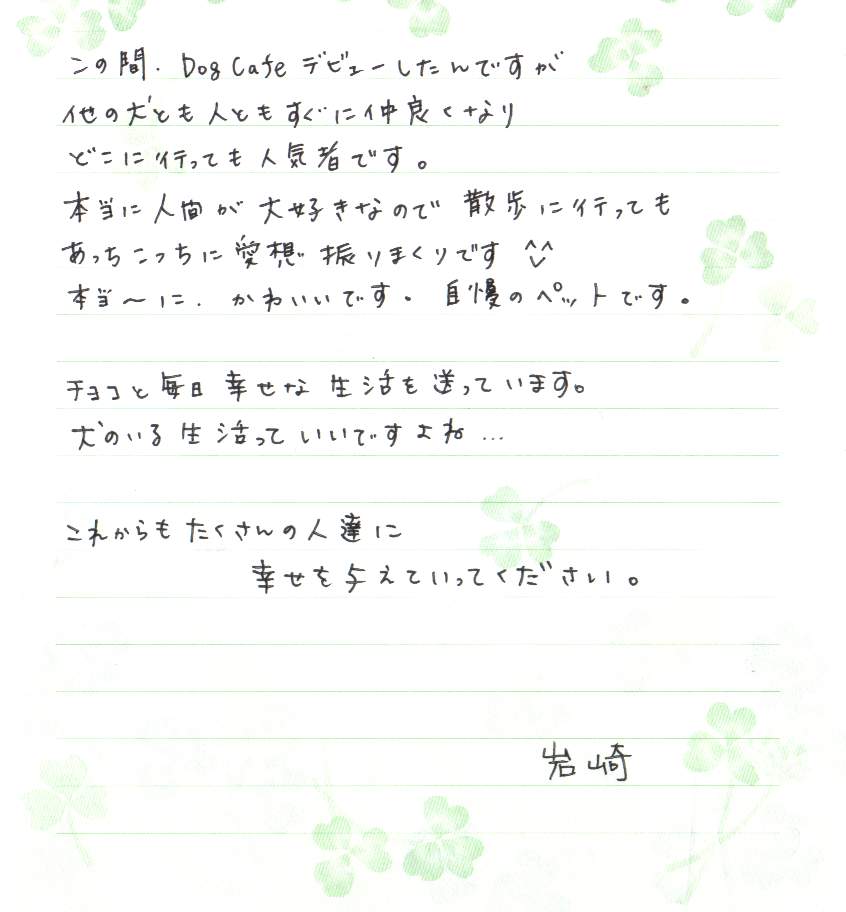 この間、Dog Cafe デビューしたんですが
他の犬とも人ともすぐに仲良くなり
どこに行っても人気者です。
本当に人間が大好きなので 散歩に行っても
あっちこっちに愛想振りまくりです ^^
本当〜に、かわいいです。自慢のペットです。
チョコと毎日幸せな生活を送っています。
犬のいる生活っていいですよね…
これからもたくさんの人達に
幸せを与えていってください。
岩崎